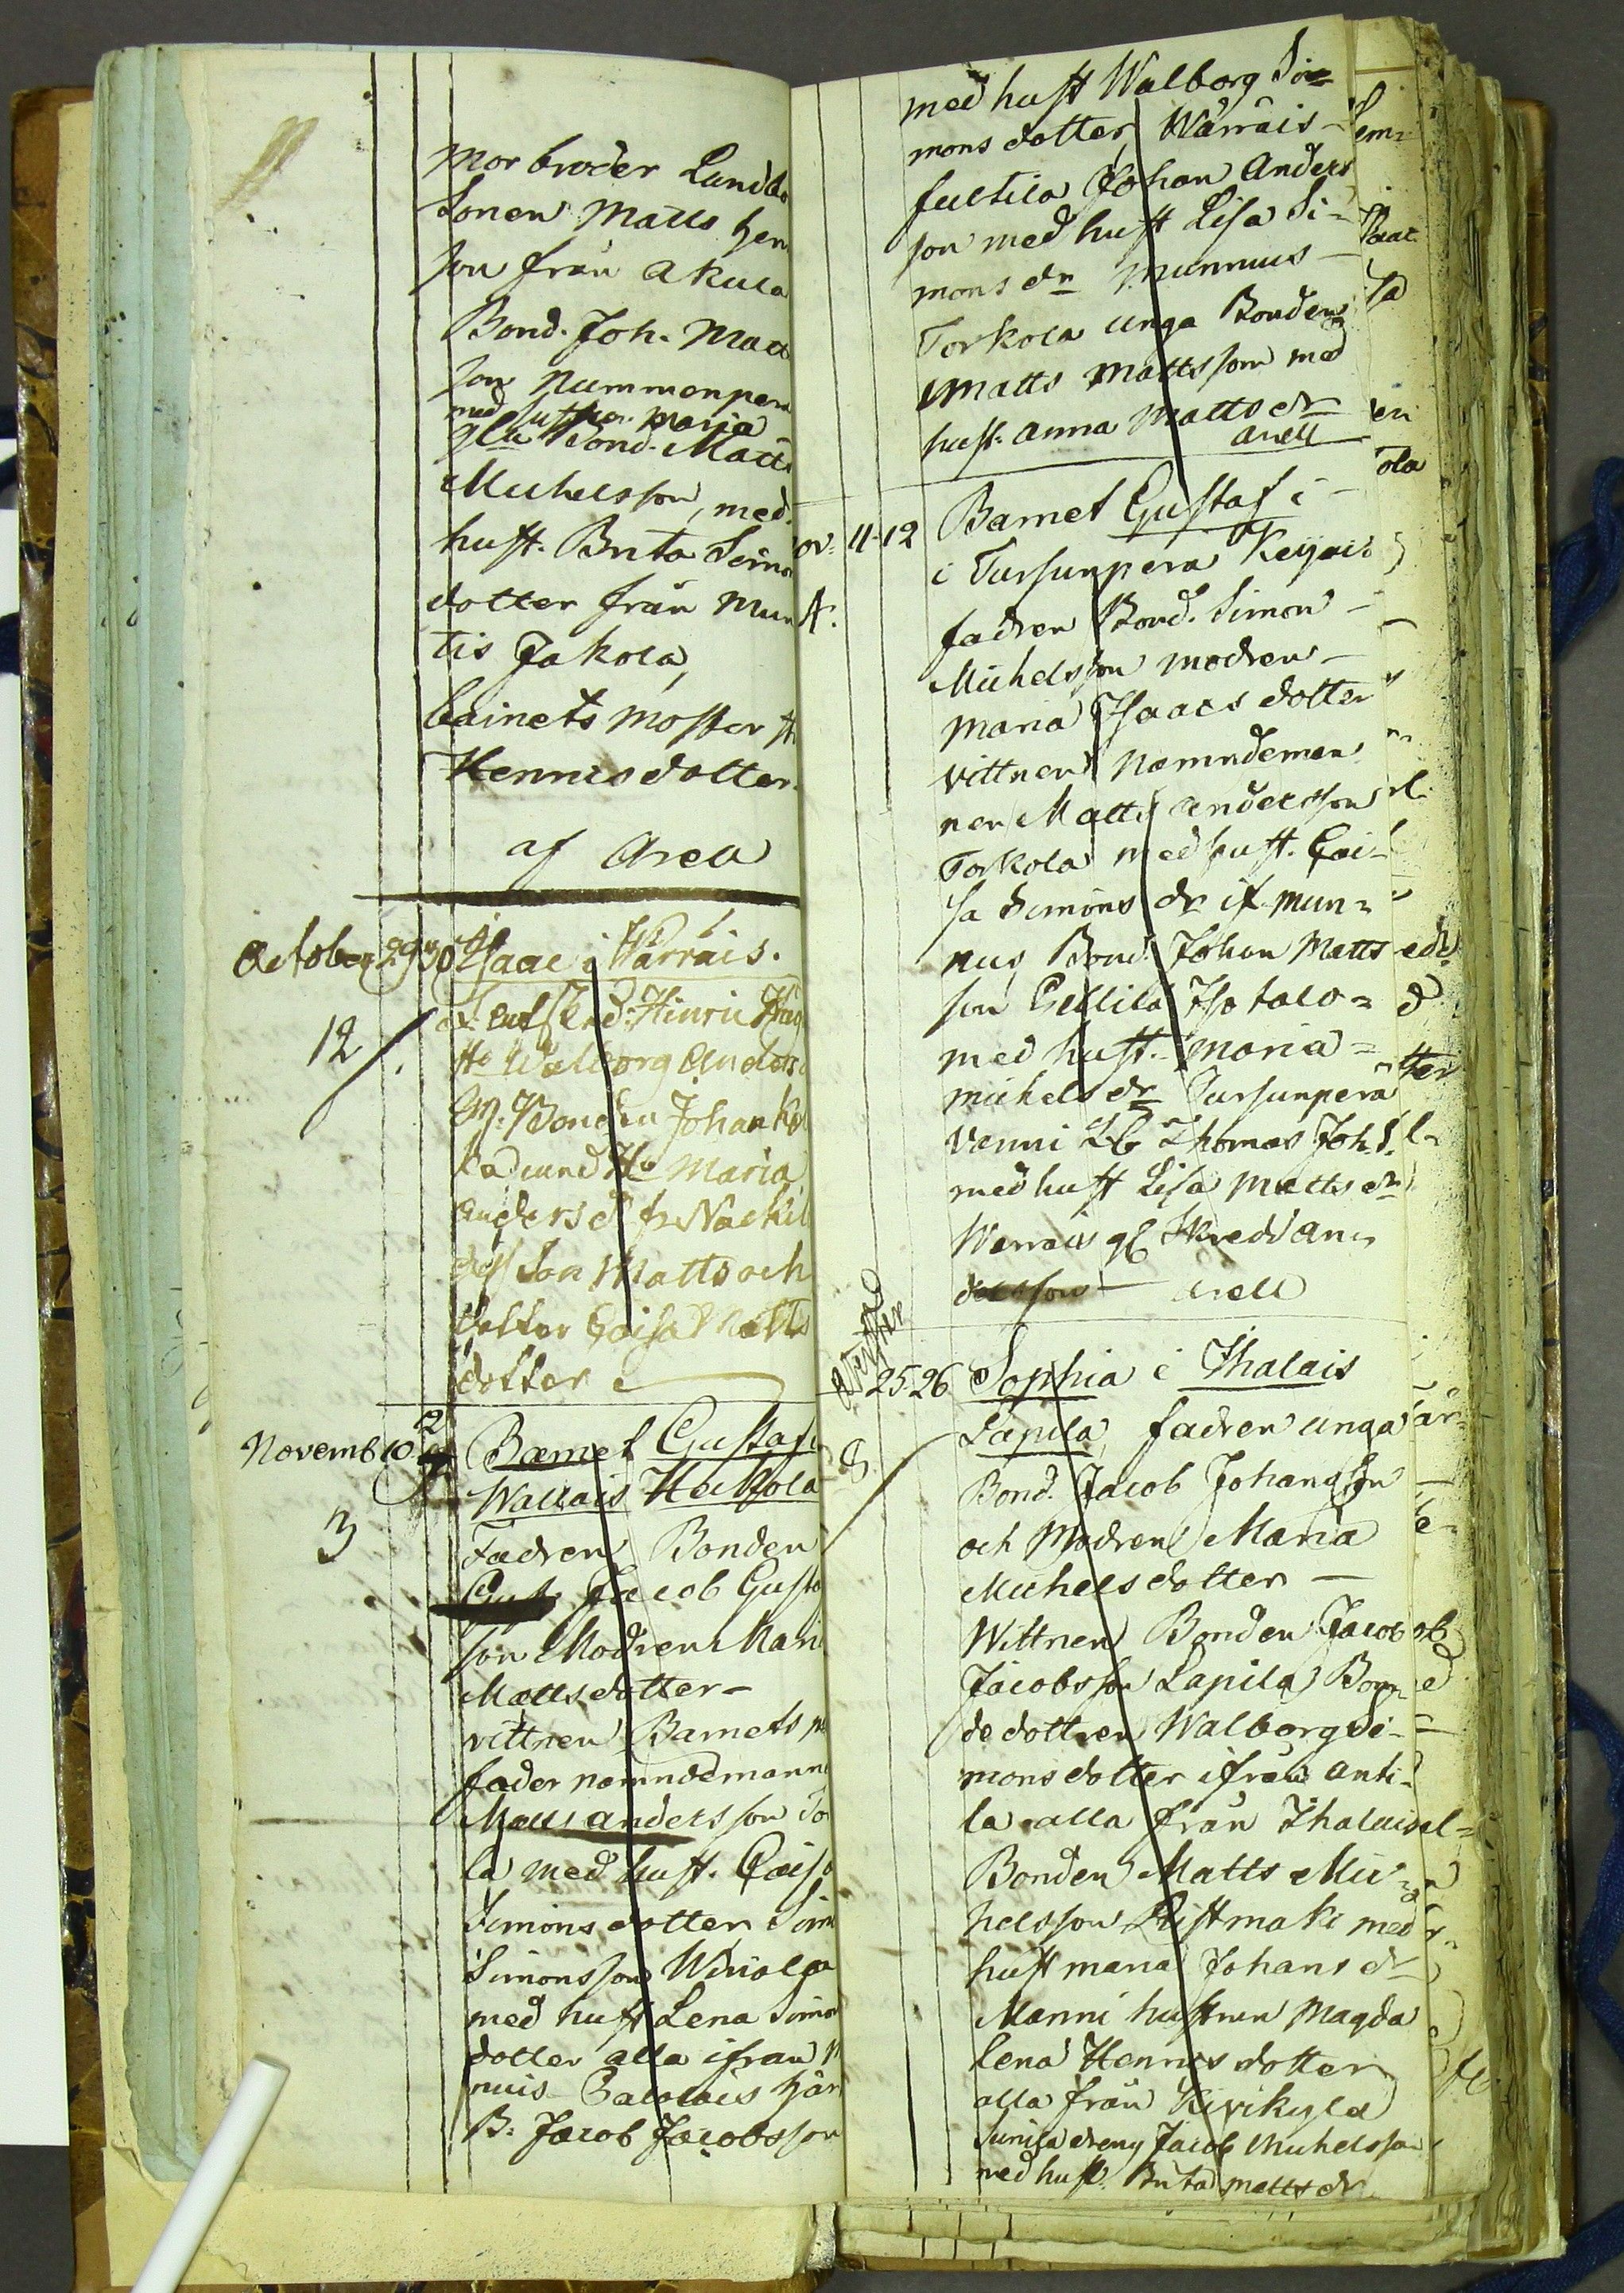 Mor broder Landbo
Sonen Matts Hen
son från Akula
Bond. Joh. Mattes
son Nummenpera
med hustr. Maria
gla Bond. Matts
Michelsson, med
hust. Brita Simo
dotter från Mun
tis Jakola,
bainets Moster H
Hennisdotter
af Arell
October 29 30 Isaac i Wärräis.
12
Hu Walborg Anders
Bonden Johan
Hu Maria
Anders dr fr Nackil
Son Matts och
dotter Caisa Matts
dotter
Novemb 10 2 Barnet Gustaf i
Wallais Hakola
3
Fadren Bonden
Jacob Gusta
son Modren Mari
Matts dotter -
vittnen Barnets
fader nämndemann
Matts Andersson To
la med hust. Caisa
Simons dotter Sim
Simonsson Winola
med hust Lena Simon
dotter alla ifran M
nuis
B: Jacob Jacobsson
med hust Walborg Si=
mons dotter Wärräis -
fultila Johan Anders
son med hust Lisa Si=
mons dr Munnuis -
Torkola unga Bonden
Matts Mattsson med
hust. Anna Matts dr
Arell
ov: 11-12 Barnet Gustaf i -
i Tursunpera Keijais
4.
fadren Bond. Simon -
Michelsson modren -
Maria Isaacs dotter
vittnen Nämndeman
nen Matts Andersson
Torkola med hust. Cai-
sa Simons dr if. Mun=
nus Bond Johan Matts
son Isotalo =
med hust. Maria =
michels dr Tursunperä
Venni Lb Thomas Joh. s.
med hust Lisa Matts dr
Werrais gl Skredd An=
dersson - Arell
25-26 Sophia i Ihalais
8.
Lapila, fadren unga
Bond. Jacob Johansson
och Modren Maria
Michels dotter -
Wittnen Bonden Jacob
Jacobsson Lapila Bon=
de dottren Walborg Si-
mons dotter ifrån Anti-
la alla från Ihalais
Bonden Matts Mic-
helsson Ristmaki med
hust Maria Johans dr
Manni hustrun Magda
lena Hennis dotter
alla från Kivikylä
Sunila dreng Jacob Michelsson
med hust. Brita Matts dr